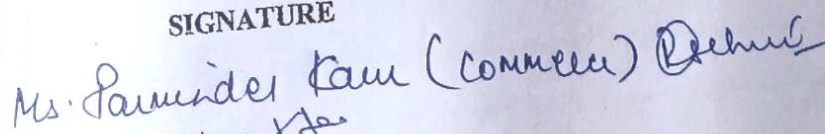 SIGNATURE
Ms. Parminder Kaur (Commerce)